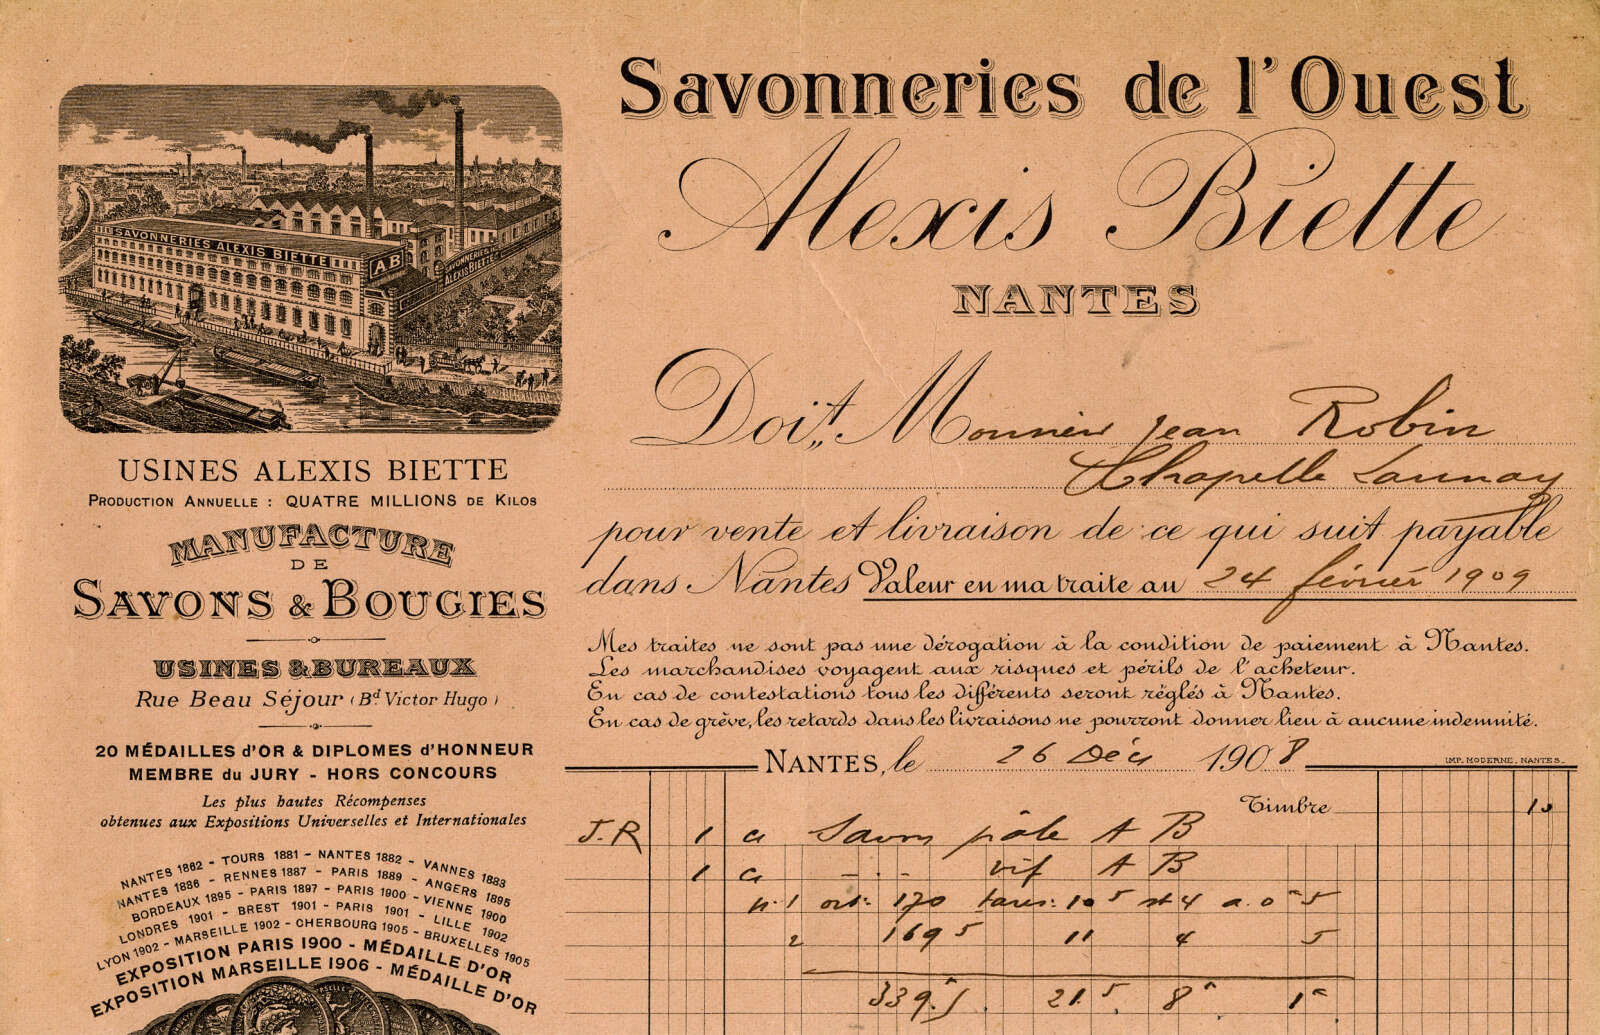 SAVONNERIES ALEXIS BIETTE
AB
SAVONNERIES
ALEXIS BIETTE
USINES ALEXIS BIETTE
PRODUCTION ANNUELLE : QUATRE MILLIONS DE KILOS
MANUFACTURE
DE
SAVONS & BOUGIES
USINES & BUREAUX
Rue Beau Séjour (Bd Victor Hugo)
20 MÉDAILLES d'OR & DIPLOMES d'HONNEUR
MEMBRE du JURY - HORS CONCOURS
Les plus hautes Récompenses
obtenues aux Expositions Universelles et Internationales
NANTES 1862 - TOURS 1881 - NANTES 1882 - VANNES 1883
NANTES 1886 - RENNES 1887 - PARIS 1889 - ANGERS 1895
BORDEAUX 1895 - PARIS 1897 - PARIS 1900 - VIENNE 1900
LONDRES 1901 - BREST 1901 - PARIS 1901 - LILLE 1902
LYON 1902 - MARSEILLE 1902 - CHERBOURG 1905 - BRUXELLES 1905
EXPOSITION PARIS 1900 - MÉDAILLE D'OR
EXPOSITION MARSEILLE 1906 - MÉDAILLE D'OR
Savonneries de l'Ouest
Alexis Biette
NANTES
Doit, Monsieur Jean Robin
Chapelle Launay
pour vente et livraison de ce qui suit payable
dans Nantes Valeur en ma traite au 24 février 1909
Mes traites ne sont pas une dérogation à la condition de paiement à Nantes.
Les marchandises voyagent aux risques et périls de l'acheteur.
En cas de contestations tous les différents seront réglés à Nantes.
En cas de grève, les retards dans les livraisons ne pourront donner lieu à aucune indemnité.
NANTES, le 26 Déc 1908
IMP. MODERNE, NANTES.
Timbre 10
J.R 1 Savon pâle A B
1 vif A B
n. 1 170 tares: 10 5 4 5
2 169 5 11 4 5
339. 5 21. 5 8 1